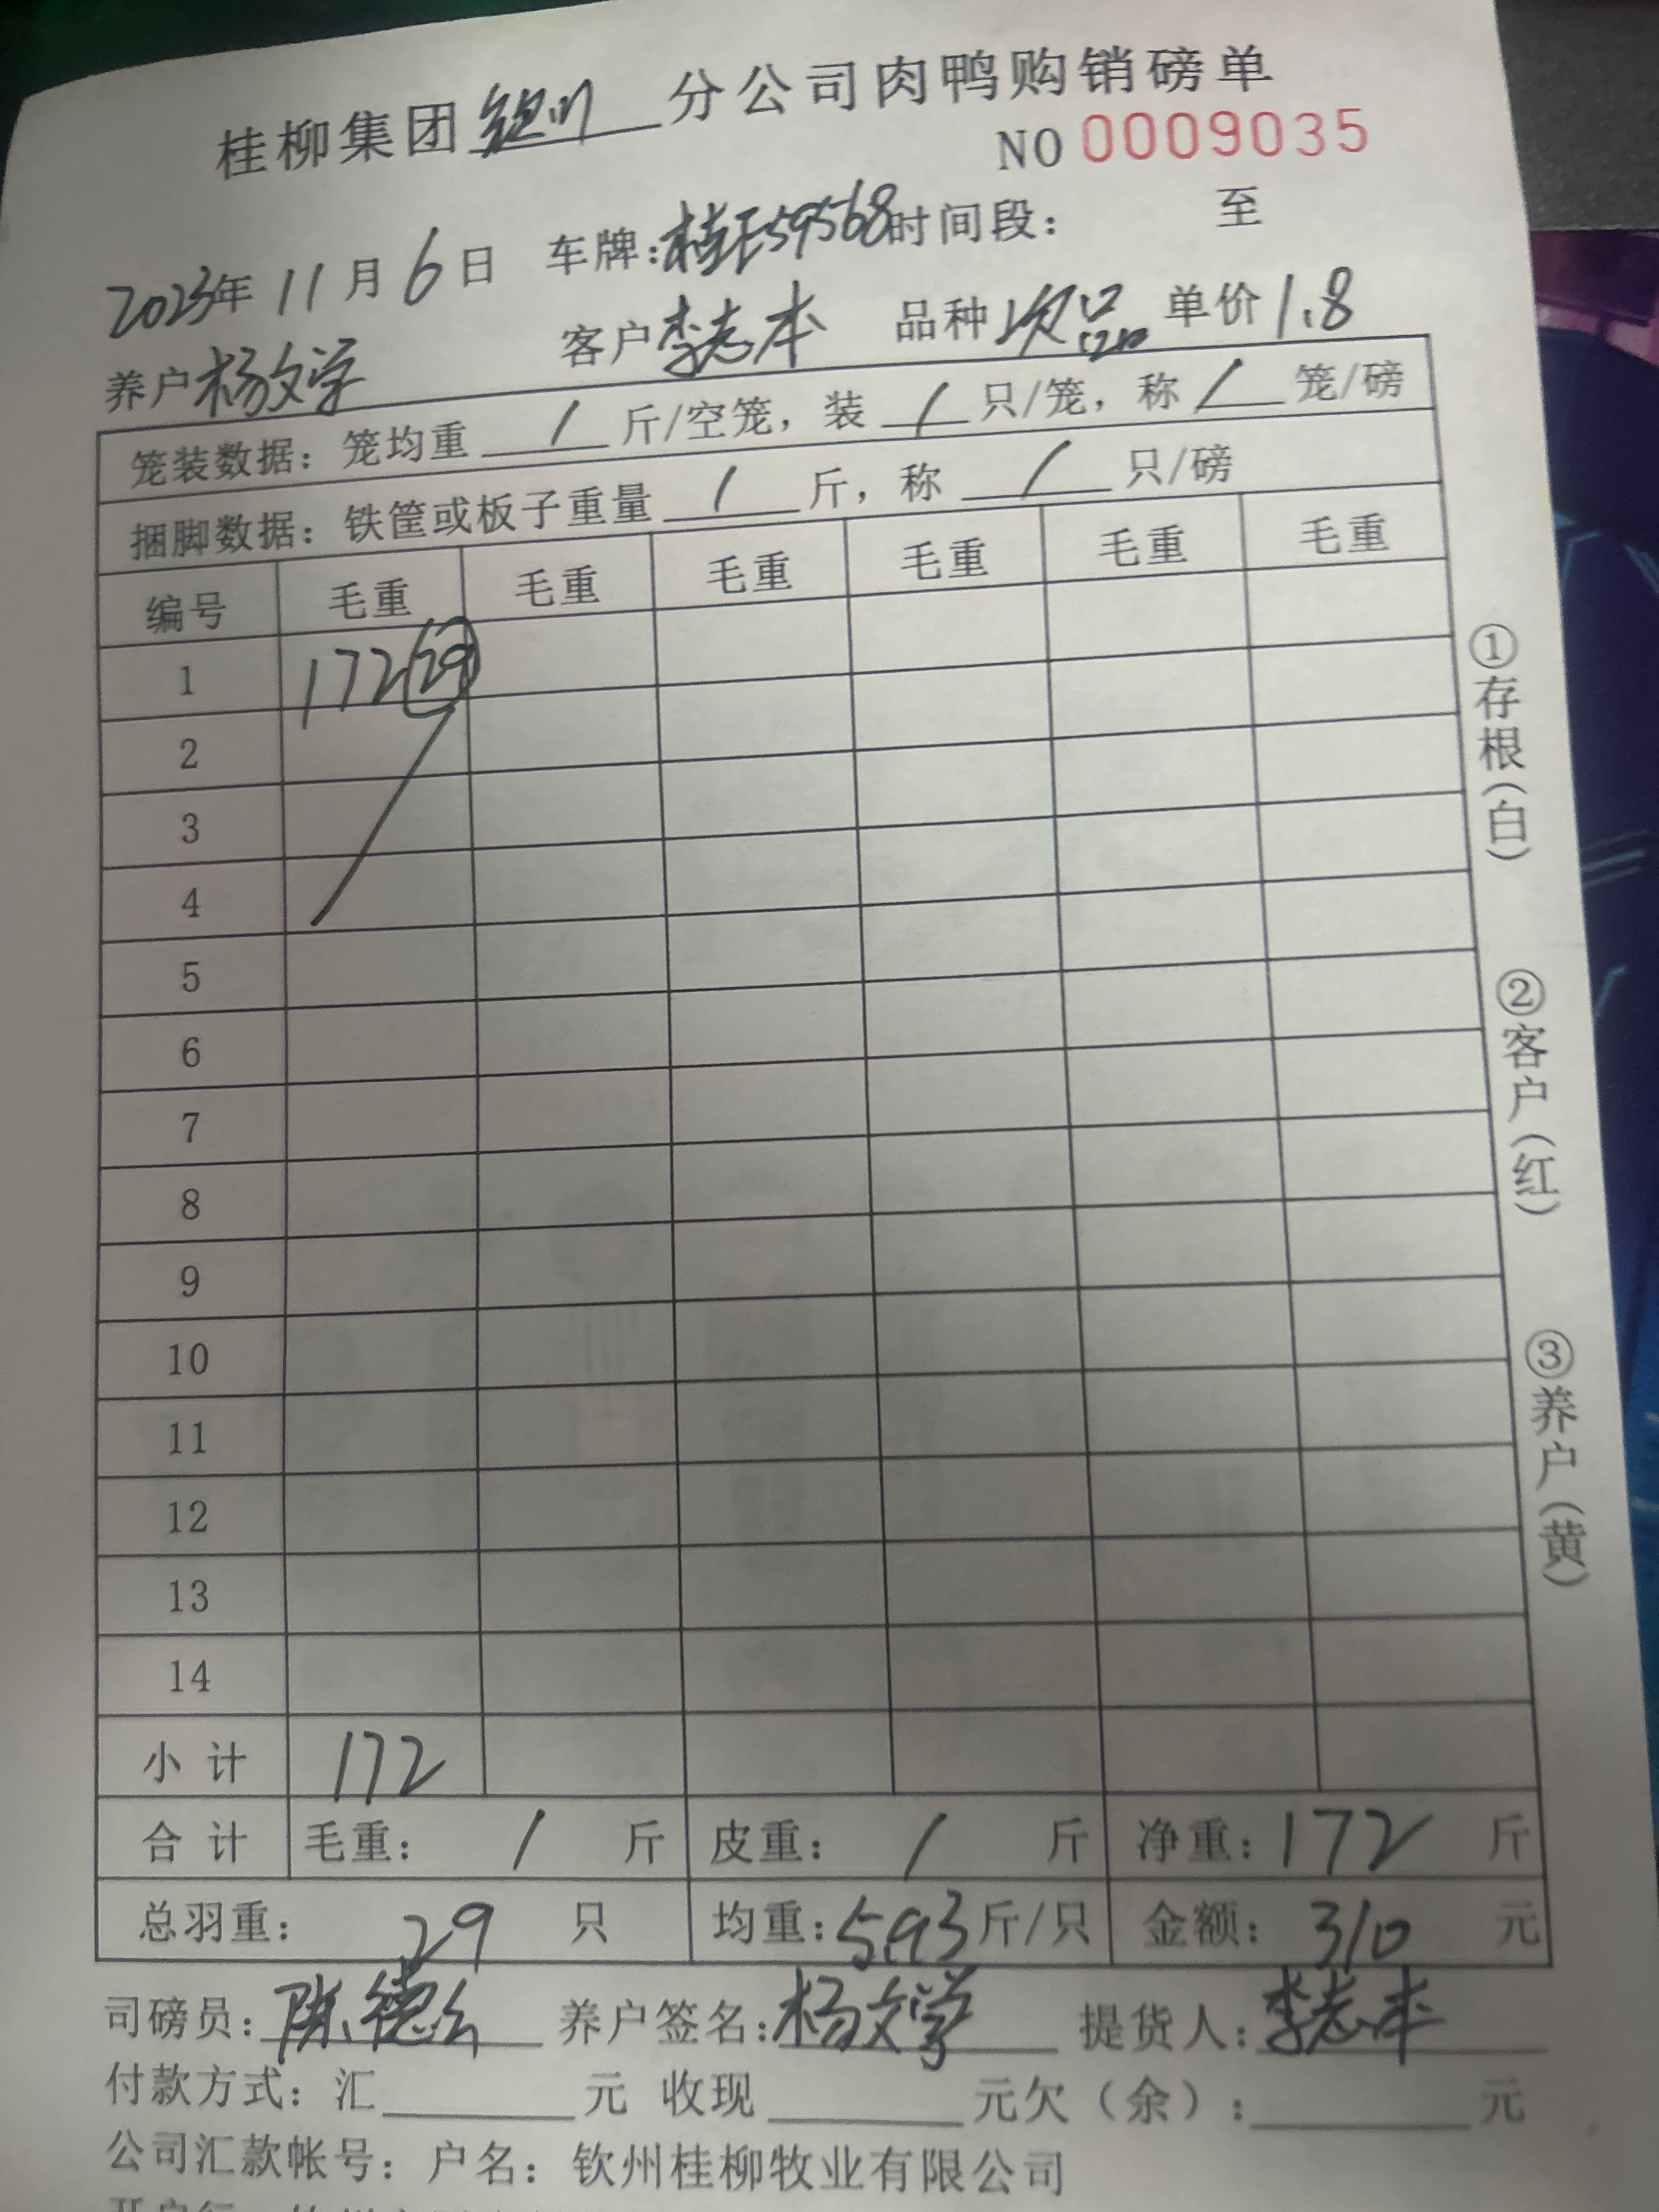 桂柳集团钦州分公司肉鸭购销磅单
NO 0009035
2023年 11月 6日 车牌:桂E59568 时间段: 至
养户 杨文学 客户 李志本 品种 次品 单价 1.8
笼装数据: 笼均重 / 斤/空笼, 装 / 只/笼, 称 / 笼/磅
捆脚数据: 铁筐或板子重量 / 斤, 称 / 只/磅
编号 毛重 毛重 毛重 毛重 毛重 毛重
1 172(29)
2
3
4
5
6
7
8
9
10
11
12
13
14
小计 172
合计 毛重: / 斤 皮重: / 斤 净重: 172 斤
总羽重: 29 只 均重: 5.93 斤/只 金额: 310 元
司磅员: 陈德 养户签名: 杨文学 提货人: 李志本
付款方式: 汇 元 收现 元欠(余): 元
公司汇款帐号: 户名: 钦州桂柳牧业有限公司
①存根(白)
②客户(红)
③养户(黄)